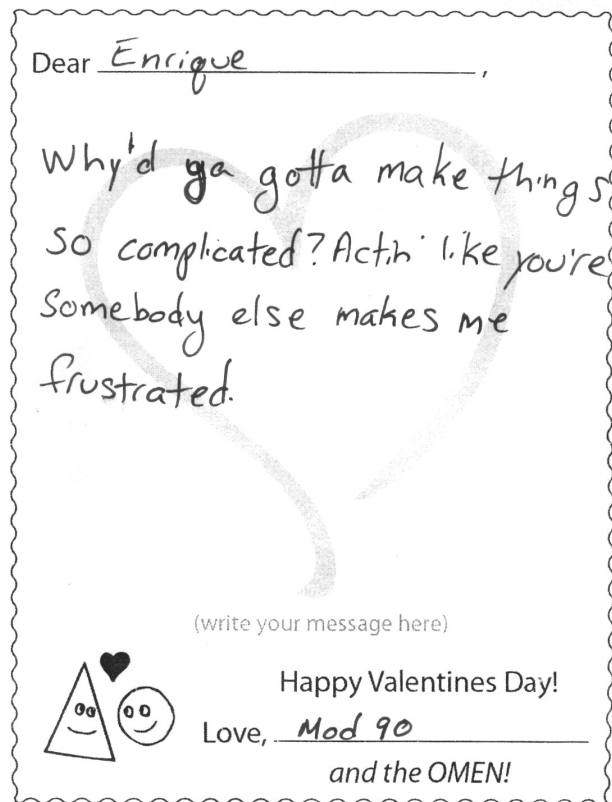 Dear Enrique,
Why'd ya gotta make things
so complicated? Actin' like you're
Somebody else makes me
frustrated.
(write your message here)
Happy Valentines Day!
Love, Mod 90
and the OMEN!